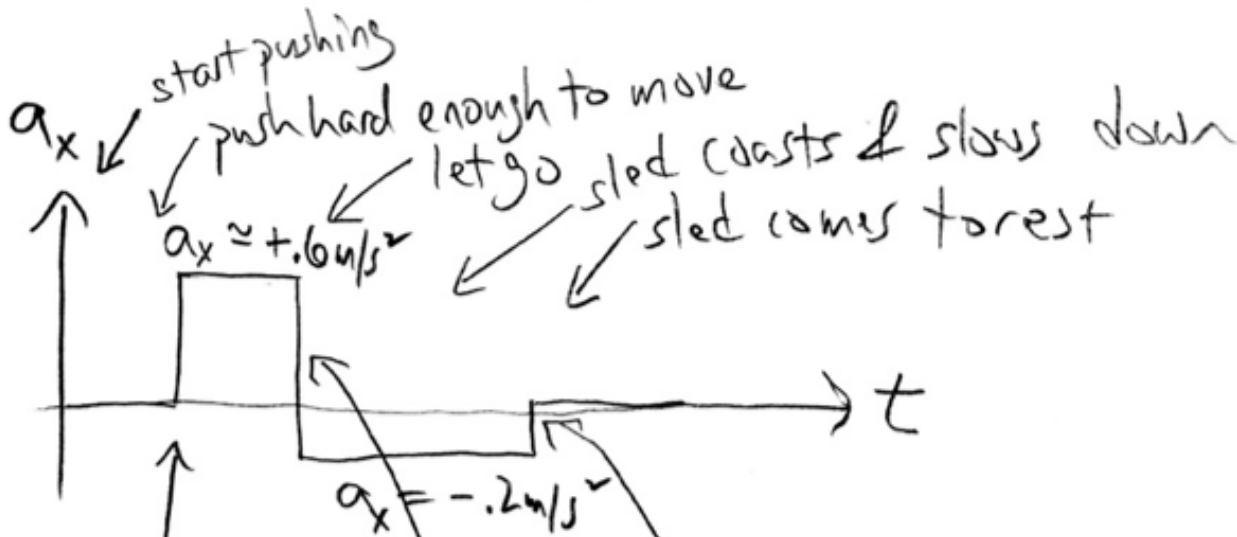 start pushing
push hard enough to move
let go
sled coasts & slows down
sled comes to rest
aₓ
aₓ ≃ +.6m/s²
t
aₓ = -.2m/s²